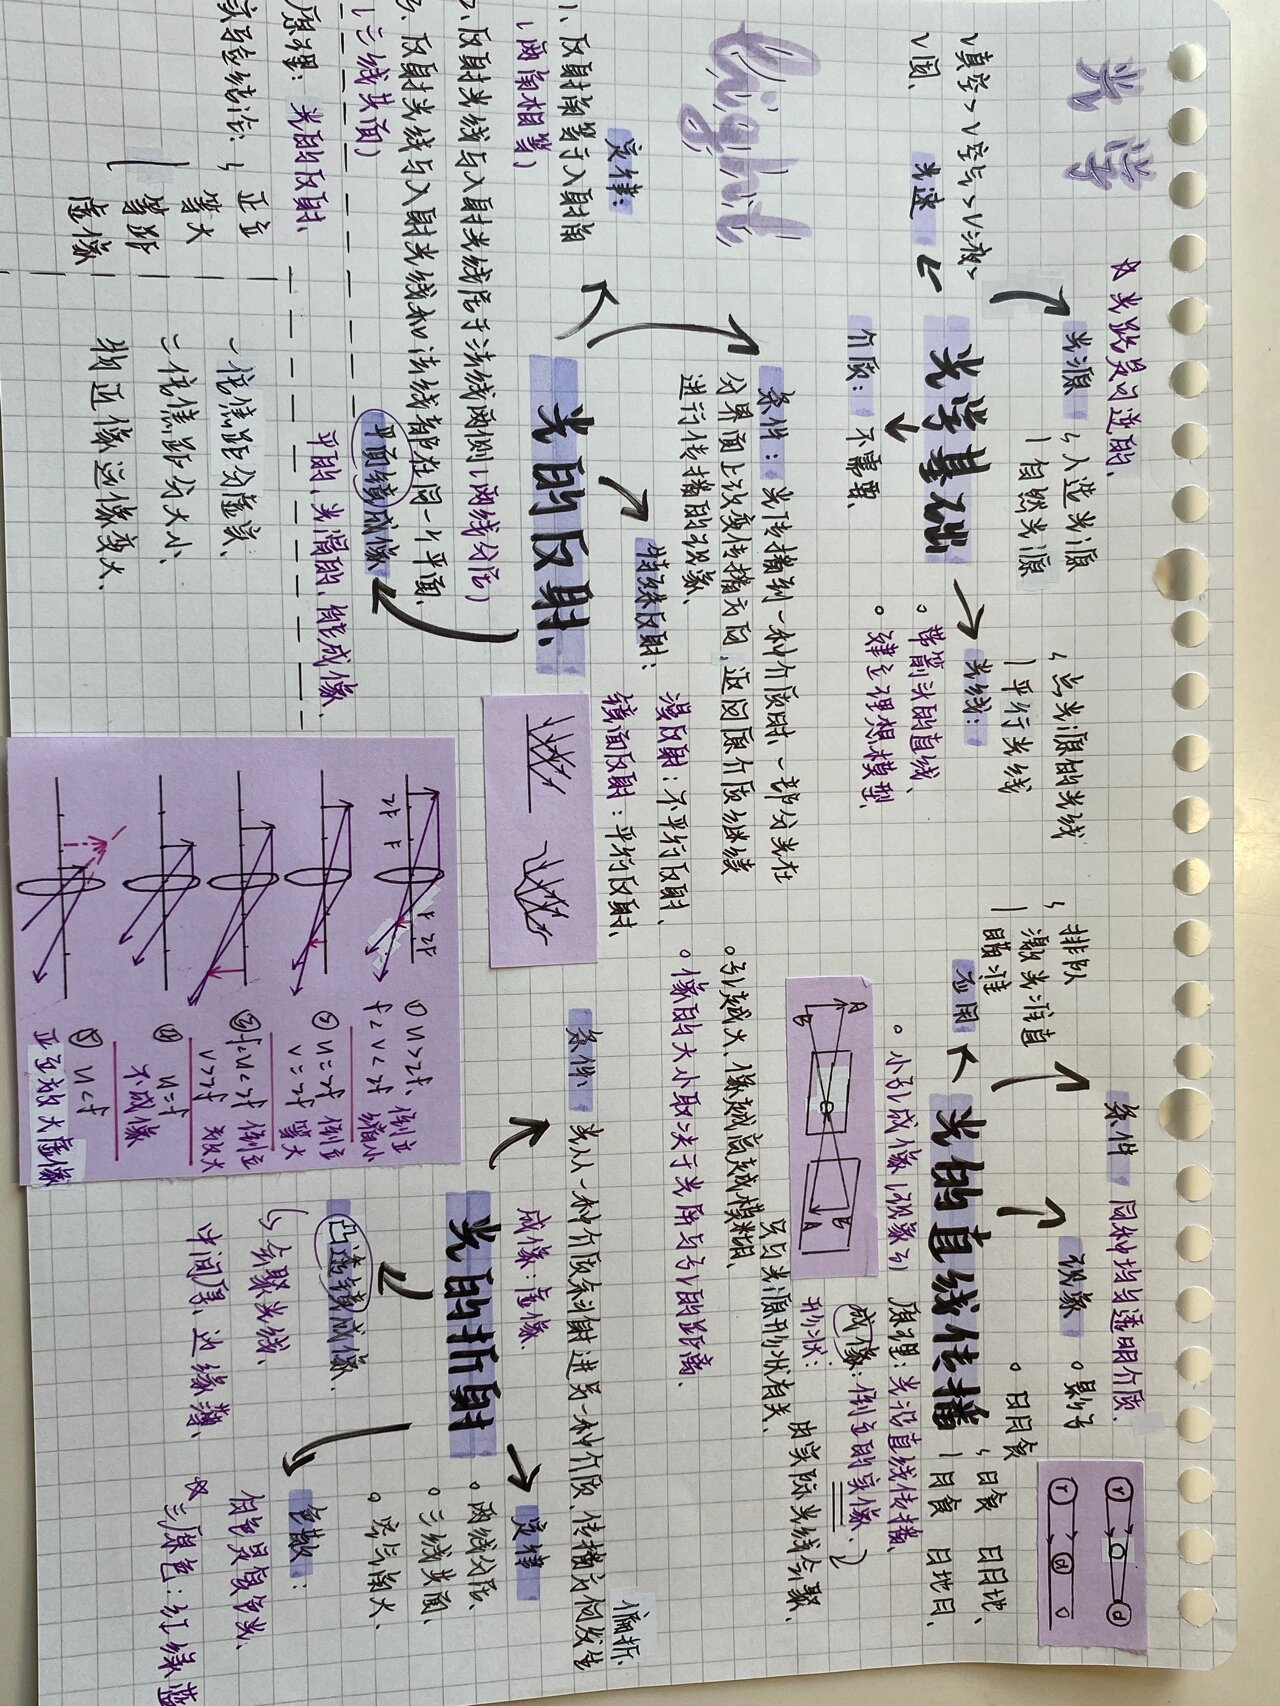 光学
Light
☆ 光路是可逆的、
光学基础
光源
人造光源
自然光源
光速
V真空>V空气>V液>
V固、
介质：不需要、
光线：
点光源的光线
平行光线
带箭头的直线、
建立理想模型
光的直线传播
条件
同种均匀透明介质、
现象
影子
日月食
日食 日月地、
月食 日地月、
应用
排队
激光准直
瞄准
小孔成像（现象）
原理：光沿直线传播、
成像：倒立的实像、
由实际光线会聚、
形状：
只与光源形状有关、
孔越大、像越高越模糊、
像的大小取决于光屏与孔的距离、
A
B
B
A
光的反射、
条件：光传播到一种介质时、一部分光在
分界面上改变传播方向、返回原介质继续
进行传播的现象、
定律：
1、反射角等于入射角
（两角相等）
2、反射光线与入射光线居于法线两侧（两线分居）
3、反射光线与入射光线和法线都在同一个平面、
（三线共面）
特殊反射：
漫反射：不平行反射、
镜面反射：平行反射、
平面镜成像
平的、光滑的、能成像、
原理：光的反射、
正立
等大
等距
虚像
一倍焦距分虚实、
二倍焦距分大小、
物近像远像变大、
光的折射
条件、光从一种介质斜射进另一种介质、传播方向发生
偏折、
成像：虚像、
定律
两线分居、
三线共面、
空气角大、
凸透镜成像、
会聚光线、
中间厚、边缘薄、
色散：
白色是复色光、
☆ 三原色：红绿蓝
2f
f
f
2f
① u>2f、倒立
f<v<2f 缩小
② u=2f 倒立
v=2f 等大
③ f<u<2f 倒立
v>2f 放大
④ u=f
不成像
⑤ u<f
正立放大虚像